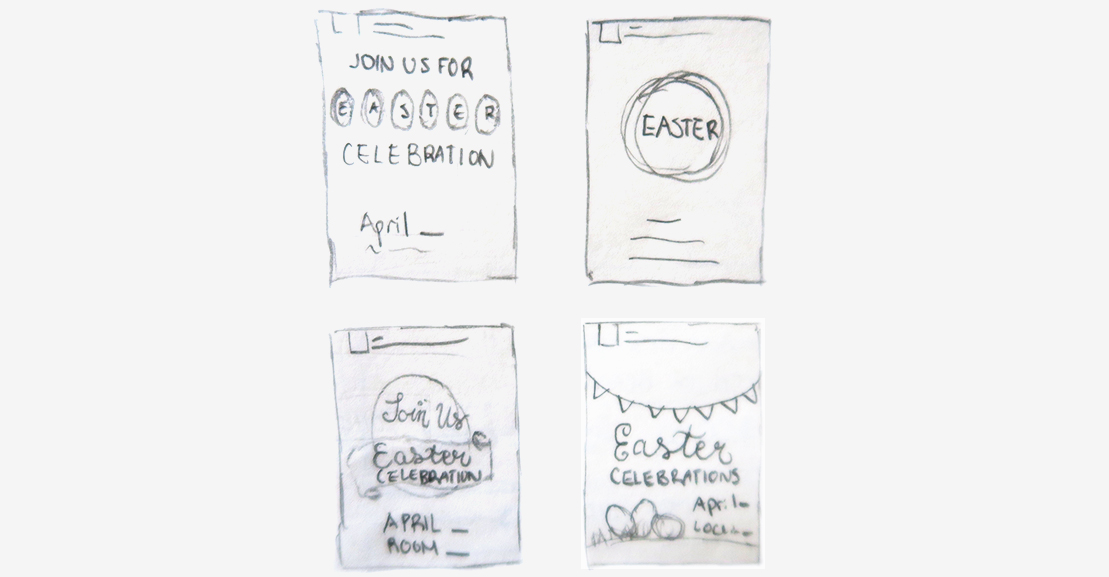 JOIN US FOR
EASTER
CELEBRATION
April _
EASTER
Join Us
Easter
CELEBRATION
APRIL _
ROOM _
Easter
CELEBRATIONS
April -